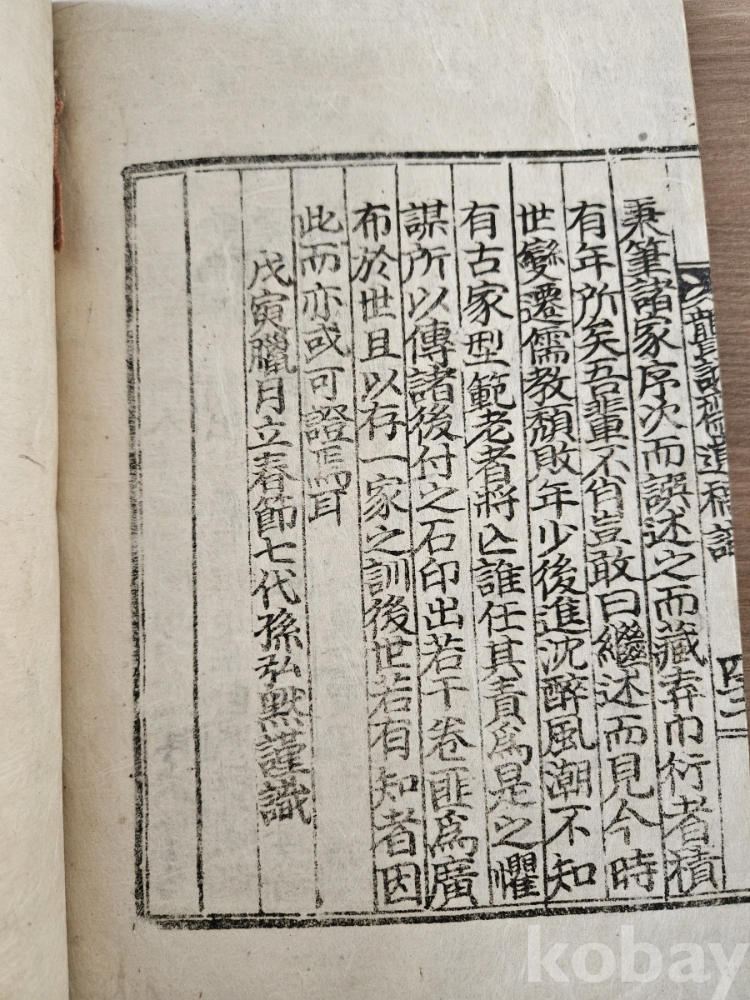 秉筆諸家序次而誤述之而藏弆巾衍者積
有年所矣吾輩不肖豈敢曰繼述而見今時
世變遷儒教頹敗年少後進沉醉風潮不知
有古家型範老者將亡誰任其責爲是之懼
謀所以傳諸後付之石印出若干卷匪爲廣
布於世且以存一家之訓後世若有知者因
此而亦或可證焉耳
戊寅臘月立春節七代孫弘黙謹識
遺稿
kobay